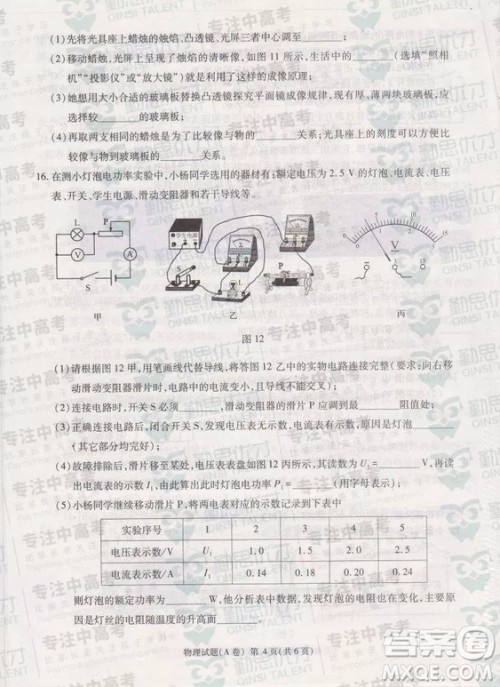 (1)先将光具座上蜡烛的烛焰、凸透镜、光屏三者中心调至______。
(2)移动蜡烛,光屏上呈现了烛焰的清晰像,如图 11 所示,生活中的______(选填“照相
机”“投影仪”或“放大镜”)就是应用了这样的成像原理;
(3)她想用大小合适的玻璃板替换凸透镜探究平面镜成像规律,现有厚、薄两块玻璃板,应
选择较______的玻璃板;
(4)再取两支相同的蜡烛是为了比较像与物的______关系。光具座上的刻度尺是为了
比较像与物到玻璃板的______关系。
16.在测小灯泡电功率实验中,小杨同学选用的器材有:额定电压为 2.5 V的灯泡、电流表、电压
表、开关、学生电源、滑动变阻器和若干导线等。
L P
V
S A
甲
学生电源
S L P
乙
0 1 2 3
0 5 10 15
V
- 3 15
丙
图 12
(1)请根据图 12 甲,用笔画线代替导线,将答图 12 乙中的实物电路连接完整(要求:向右移
动滑动变阻器滑片时,电路中的电流变小,且导线不交叉)。
(2)连接电路时,开关 S 必须______,滑动变阻器的滑片 P 应调到最______阻值处;
(3)正确连接电路后,闭合开关 S,发现电压表无示数,电流表有示数,原因可能是灯泡______
(其它部分均完好);
(4)故障排除后,滑片移至某处,电压表示数如图 12 丙所示,示数为 U₁=______V,再读
出电流表的示数 I₁,由此算出此时灯泡电功率 P₁=______(用字母表示);
(5)小杨同学继续移动滑片 P,将两电表对应的示数记录到下表中
实验序号 1 2 3 4 5
电压表示数/V U₁ 1.0 1.5 2.0 2.5
电流表示数/A I₁ 0.14 0.18 0.22 0.24
则灯泡的额定功率为______W,在处理实验数据时,发现灯泡的电阻是变化的,主要原
因是灯丝的电阻随温度的升高而______。
物理试题(A卷) 第 4 页(共 6 页)